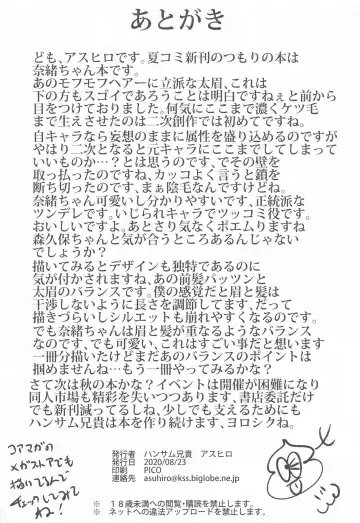 あとがき
ども、アスヒロです。夏コミ新刊のつもりの本は
奈緒ちゃん本です。
あのモフモフヘアーに立派な太眉、これは
下の方もスゴイであろうことは明白ですねぇと前から
目をつけておりました。何気にここまで濃くケツ毛
まで生えさせたのは二次創作では初めてですね。
自キャラなら妄想のままに属性を盛り込めるのですが
やはり二次となると元キャラにここまでしてしまって
いいものか…？とは思うのです、でその壁を
取っ払ったのですね、カッコよく言うと鎖を
断ち切ったのです、まぁ陰毛なんですけどね。
奈緒ちゃん可愛いし分かりやすいです、正統派な
ツンデレです。いじられキャラでツッコミ役です。
おいしいですよ。あとさり気なくポエムりますね
森久保ちゃんと気が合うところあるんじゃない
でしょうか？
描いてみるとデザインも独特であるのに
気が付かされますね、あの前髪パッツンと
太眉のバランスです。僕の感覚だと眉と髪は
干渉しないように長さを調節してます、だって
描きづらいしシルエットも崩れやすくなるのです。
でも奈緒ちゃんは眉と髪が重なるようなバランス
なのです、でも可愛い、これはすごい事だと思います
一冊分描いたけどまだあのバランスのポイントは
掴めませんね…もう一冊やってみるかな？
さて次は秋の本かな？イベントは開催が困難になり
同人市場も精彩を失いつつあります、書店委託だけ
でも新刊減ってるしね、少しでも支えるためにも
ハンサム兄貴は本を作り続けます、ヨロシクね。
コアマガの
メガストアでも
描いてるんで
チェックしてみて
ね！
発行者 ハンサム兄貴 アスヒロ
発行日 2020/08/23
印刷 PICO
連絡先 asuhiro@kss.biglobe.ne.jp
※ １８歳未満への閲覧・購読を禁止します。
※ ネットへの違法アップロードを禁止します。